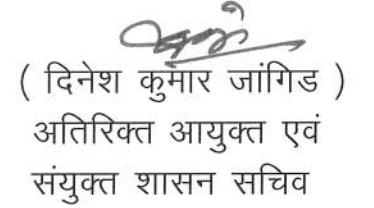 ( दिनेश कुमार जांगिड )
अतिरिक्त आयुक्त एवं
संयुक्त शासन सचिव